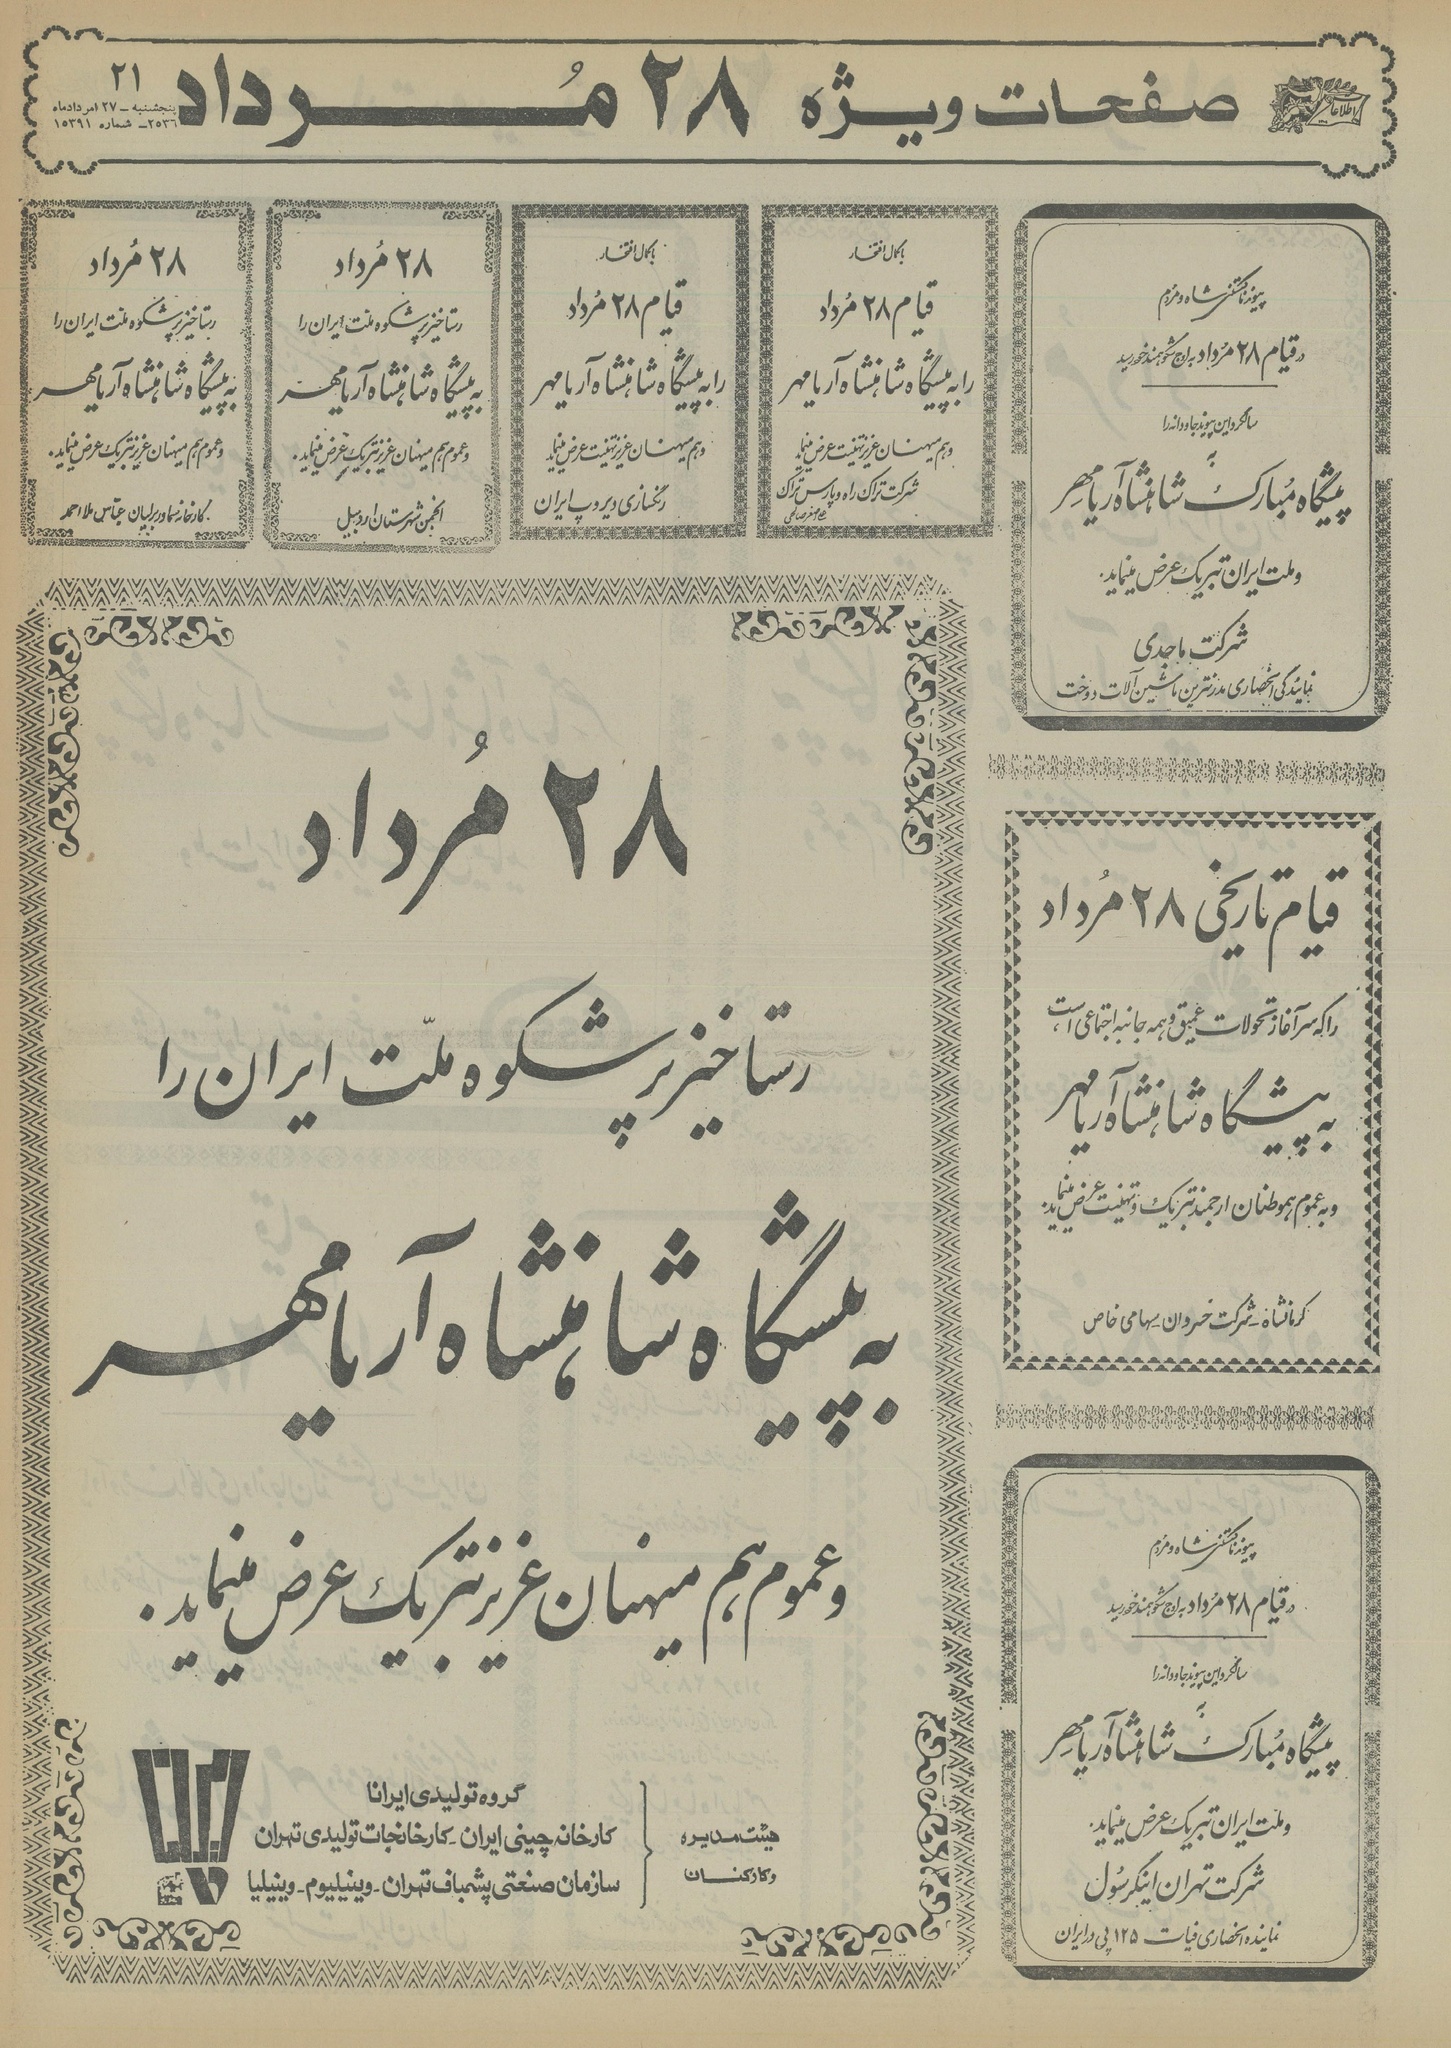 اطلاعات
صفحات ویژه ۲۸ مُرداد
۲۱
پنجشنبه – ۲۷ امردادماه
۲۵۳۶– شماره ۱۵۳۹۱
پیوند ناگسستنی شاه و مردم
در قیام ۲۸ مُرداد به اوج شکوهمند خود رسید
سالگرد این پیوند جاودانه را
به
پیشگاه مُبارک شاهنشاه آریامهر
و ملت ایران تبریک عرض مینماید.
شرکت ماجدی
نمایندگی انحصاری مدرنترین ماشین آلات دوخت
با کمال افتخار
قیام ۲۸ مُرداد
را به پیشگاه شاهنشاه آریامهر
و هم میهنان عزیز تهنیت عرض مینماید
شرکت تراک راه و پارس تراک
با کمال افتخار
قیام ۲۸ مُرداد
را به پیشگاه شاهنشاه آریامهر
و هم میهنان عزیز تهنیت عرض مینماید
رنگسازی دیروپ ایران
۲۸ مُرداد
رستاخیز پرشکوه ملت ایران را
به پیشگاه شاهنشاه آریامهر
و عموم هم میهنان عزیز تبریک عرض مینماید.
انجمن شهرستان اردبیل
۲۸ مُرداد
رستاخیز پرشکوه ملت ایران را
به پیشگاه شاهنشاه آریامهر
و عموم هم میهنان عزیز تبریک عرض مینماید.
کارخانه نماور برلیان عباس ملااحمد
قیام تاریخی ۲۸ مُرداد
را که سرآغاز تحولات عمیق و همه جانبه اجتماعی است
به پیشگاه شاهنشاه آریامهر
و به عموم هموطنان ارجمند تبریک و تهنیت عرض مینماید.
کرمانشاه – شرکت خسردان – سهامی خاص
پیوند ناگسستنی شاه و مردم
در قیام ۲۸ مُرداد به اوج شکوهمند خود رسید
سالگرد این پیوند جاودانه را
به
پیشگاه مُبارک شاهنشاه آریامهر
و ملت ایران تبریک عرض مینماید.
شرکت تهران اینگرسُول
نماینده انحصاری فیات ۱۲۵ پی در ایران
۲۸ مُرداد
رستاخیز پرشکوه ملّت ایران را
به پیشگاه شاهنشاه آریامهر
و عموم هم میهنان عزیز تبریک عرض مینماید.
هیئت مدیره
و کارکنان
گروه تولیدی ایرانا
کارخانه چینی ایران – کارخانجات تولیدی تهران
سازمان صنعتی پشمباف تهران – وینیلیوم – وینیلیا
ایرانا